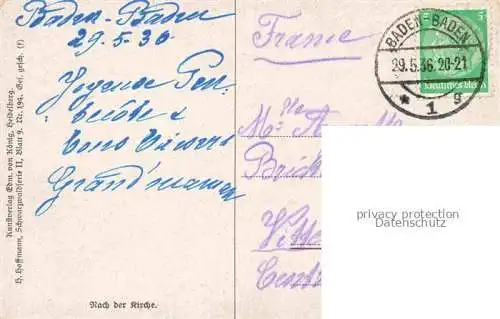 Baden-Baden
29.5-36
Joyeuse Pen-
tecôte à
tous
Grand'maman
Kunstverlag Edm. von König, Heidelberg.
H. Hoffmann, Schwarzwaldserie II, Blatt 9. Nr. 194. Ges. gesch. (f)
Nach der Kirche.
France
BADEN-BADEN
29.5.36.20-21
* 1 g
privacy protection
Datenschutz